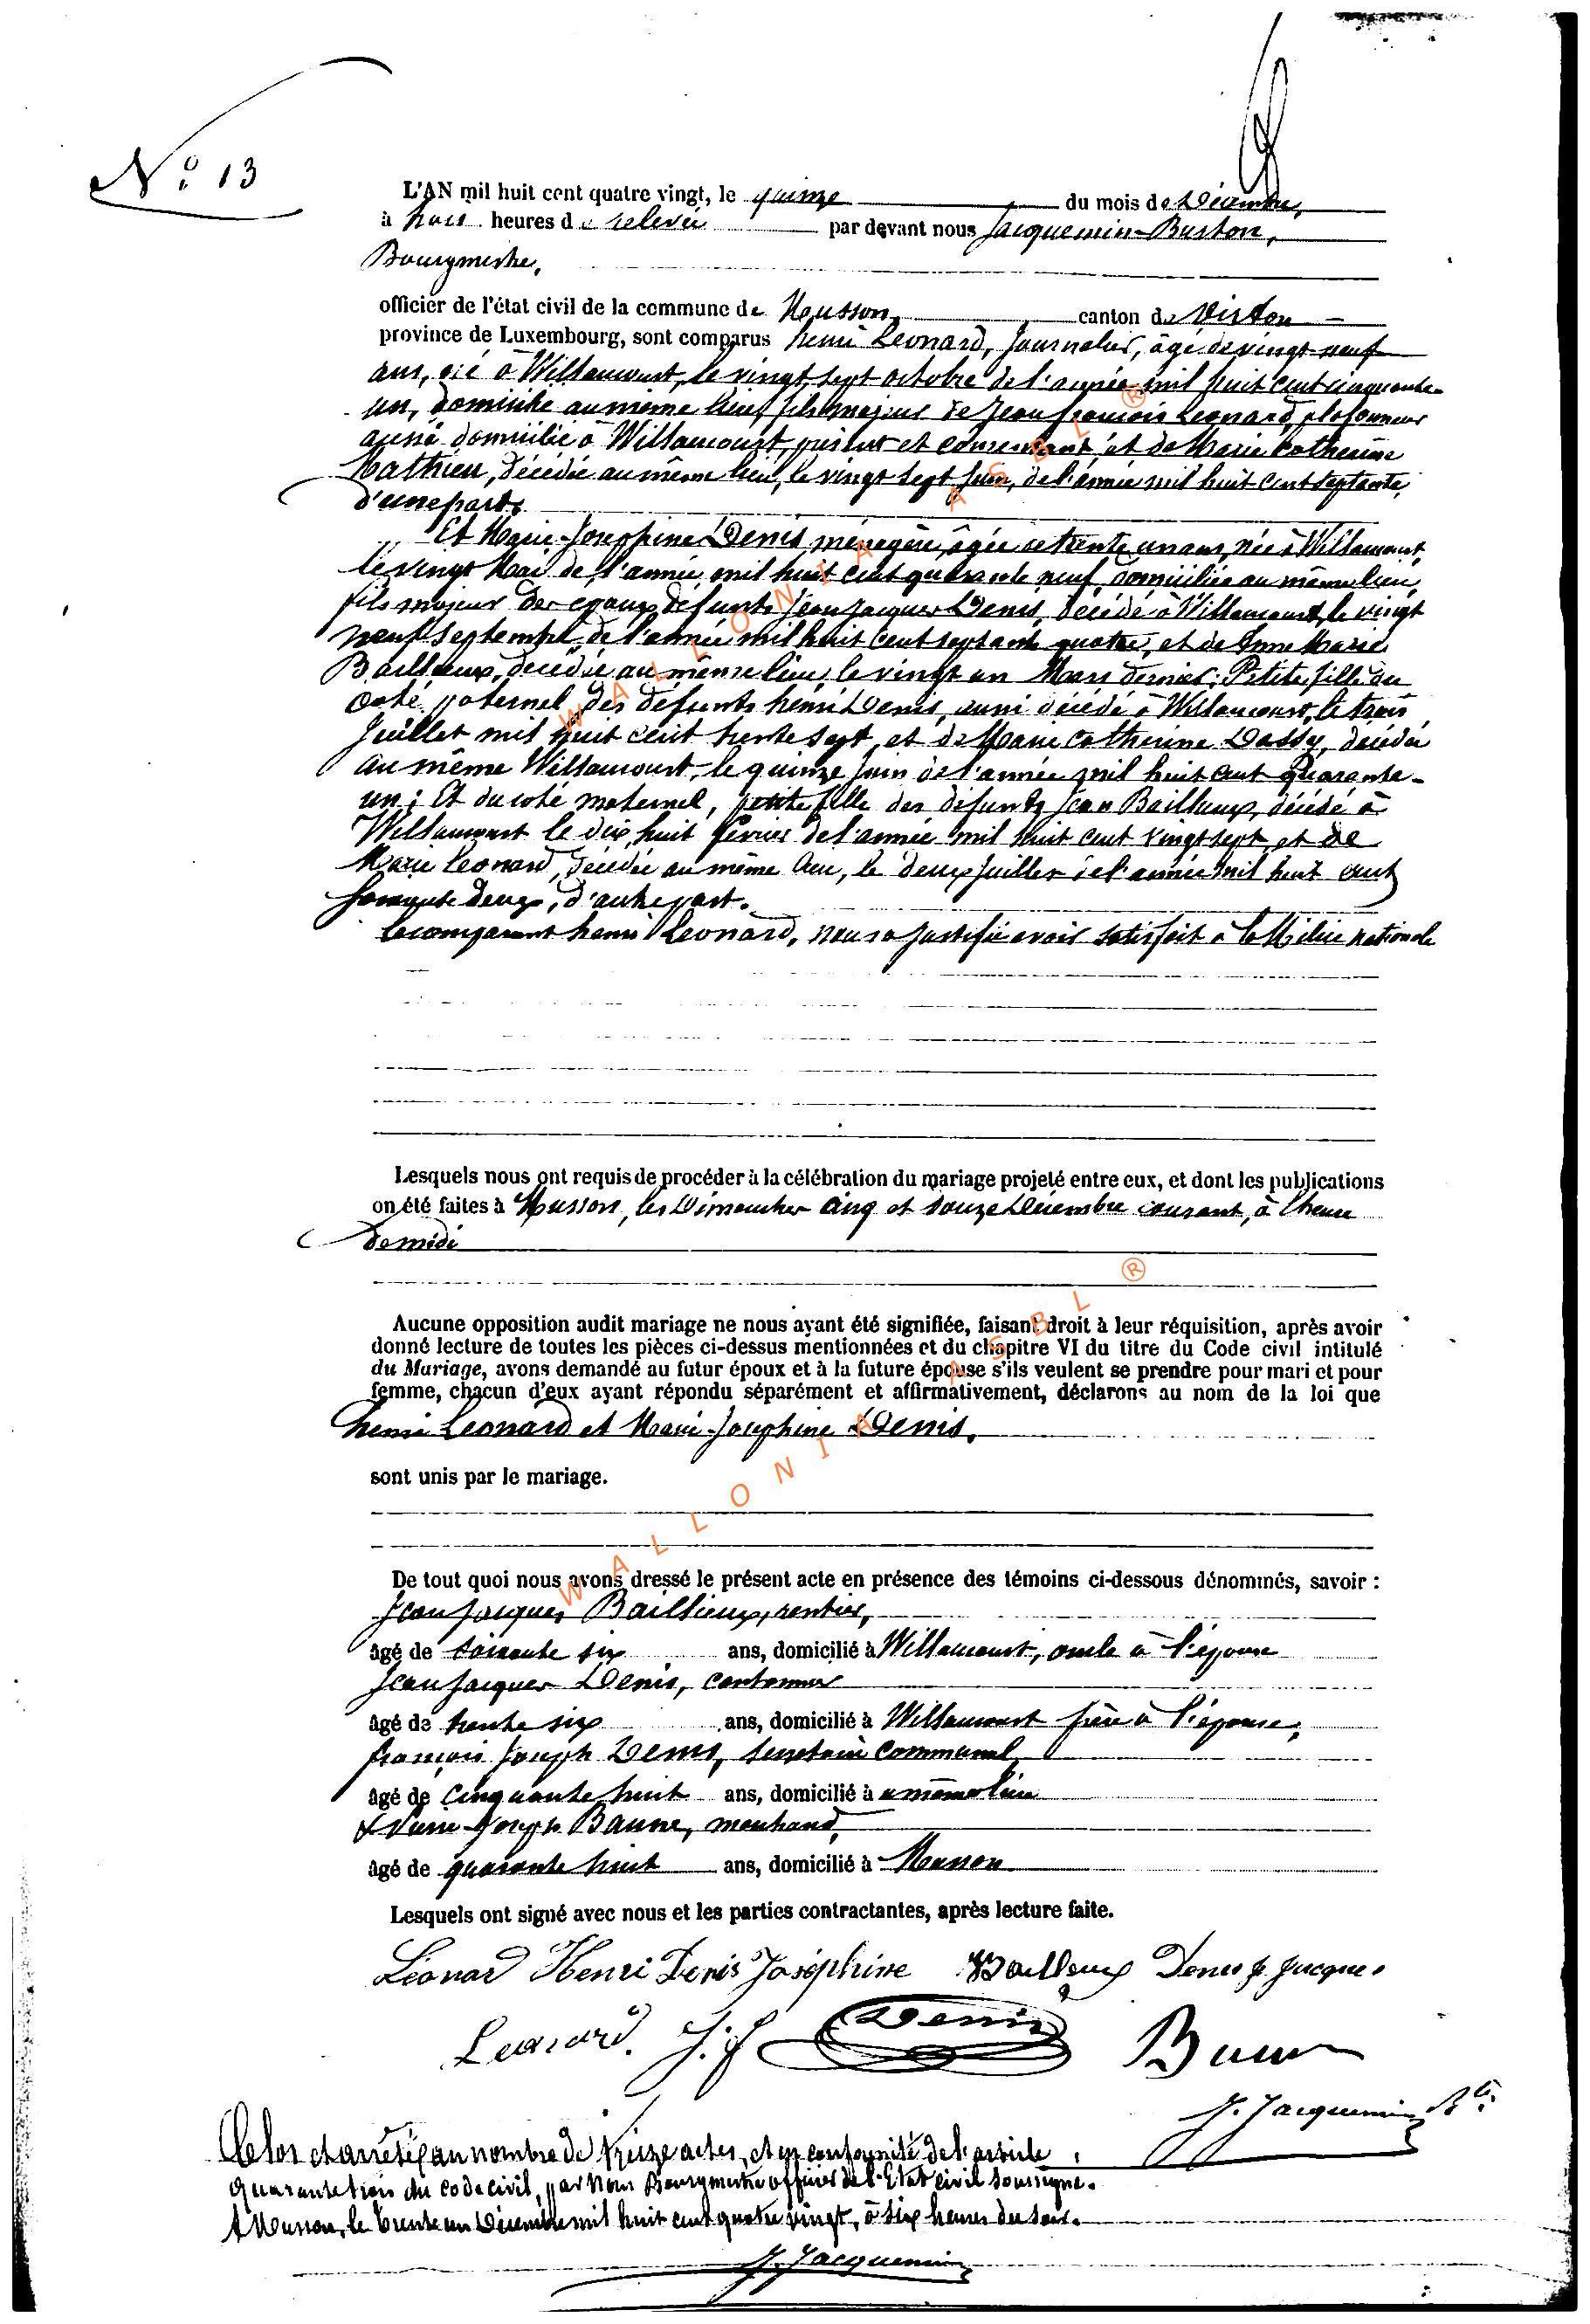 N° 13
L'AN mil huit cent quatre vingt, le quinze du mois de Décembre,
à trois heures de relevée par devant nous Jacquemin-Buston,
Bourgmestre,
officier de l'état civil de la commune de Musson, canton de Virton
province de Luxembourg, sont comparus henri Leonard, Journalier, âgé de vingt neuf
ans, né à Willancourt, le vingt sept octobre de l'année mil huit cent cinquante-
un, domicilié au même lieu, fils majeur de Jean françois Leonard, plafonneur
aussi domicilié à Willancourt, présent et consentant, et de Marie Catherine
Mathieu, décédée au même lieu, le vingt sept Juin, de l'année mil huit cent septante,
d'une part,
Et Marie-Josephine Denis ménagère, âgée de trente un ans, née à Willancourt,
le vingt Mai de l'année mil huit cent quarante neuf, domiciliée au même lieu,
fils majeur des epoux défunts Jean Jacques Denis, décédé à Willancourt, le vingt
neuf Septembre, de l'année mil huit cent septante quatre, et de Anne Marie
Bailleux, decédée au même lieu, le vingt un Mars dernier; Petite fille du
coté paternel, des défunts henri Denis, aussi décédé à Willancourt, le trois
Juillet mil huit cent trente sept, et de Marie Catherine Dassy, decédée
au même Willancourt, le quinze Juin de l'année mil huit cent Quarante-
un; Et du coté maternel, petite fille des défunts Jean Bailleux, décédé à
Willancourt le dix huit février de l'année mil huit cent vingt sept, et de
Marie Leonard, décédée au même lieu, le deux Juillet de l'année mil huit cent
soixante deux, d'autre part.
Le comparant henri Leonard, nous a justifié avoir satisfait à la Milice nationale
Lesquels nous ont requis de procéder à la célébration du mariage projeté entre eux, et dont les publications
on été faites à Musson, les Dimanches cinq et douze Décembre courant, à l'heure
de midi
Aucune opposition audit mariage ne nous ayant été signifiée, faisant droit à leur réquisition, après avoir
donné lecture de toutes les pièces ci-dessus mentionnées et du chapitre VI du titre du Code civil intitulé
du Mariage, avons demandé au futur époux et à la future épouse s'ils veulent se prendre pour mari et pour
femme, chacun d'eux ayant répondu séparément et affirmativement, déclarons au nom de la loi que
henri Leonard et Marie-Josephine Denis.
sont unis par le mariage.
De tout quoi nous avons dressé le présent acte en présence des témoins ci-dessous dénommés, savoir :
Jean Jacques Baillieux, rentier,
âgé de soixante six ans, domicilié à Willancourt, oncle à l'épouse
Jean Jacques Denis, cantonnier
âgé de trente six ans, domicilié à Willancourt frère à l'épouse,
françois Joseph Denis, secretaire communal,
âgé de cinquante huit ans, domicilié à u même lieu
Joseph Baune, marchand,
âgé de quarante huit ans, domicilié à Musson
Lesquels ont signé avec nous et les parties contractantes, après lecture faite.
Léonard Henri Denis Joséphine Bailleux Denis J Jacques
Leonard. J. f Denis Baune
J. Jacquemin Bton
Clos et arrêté au nombre de treize actes, et en conformité de l'article
quarante trois du code civil, par Nous Bourgmestre officier de l'Etat civil soussigné.
A Musson, le trente un Décembre mil huit cent quatre vingt, à six heures du soir.
J. Jacquemin
WALLONIA ASBL ®
WALLONIA ASBL ®